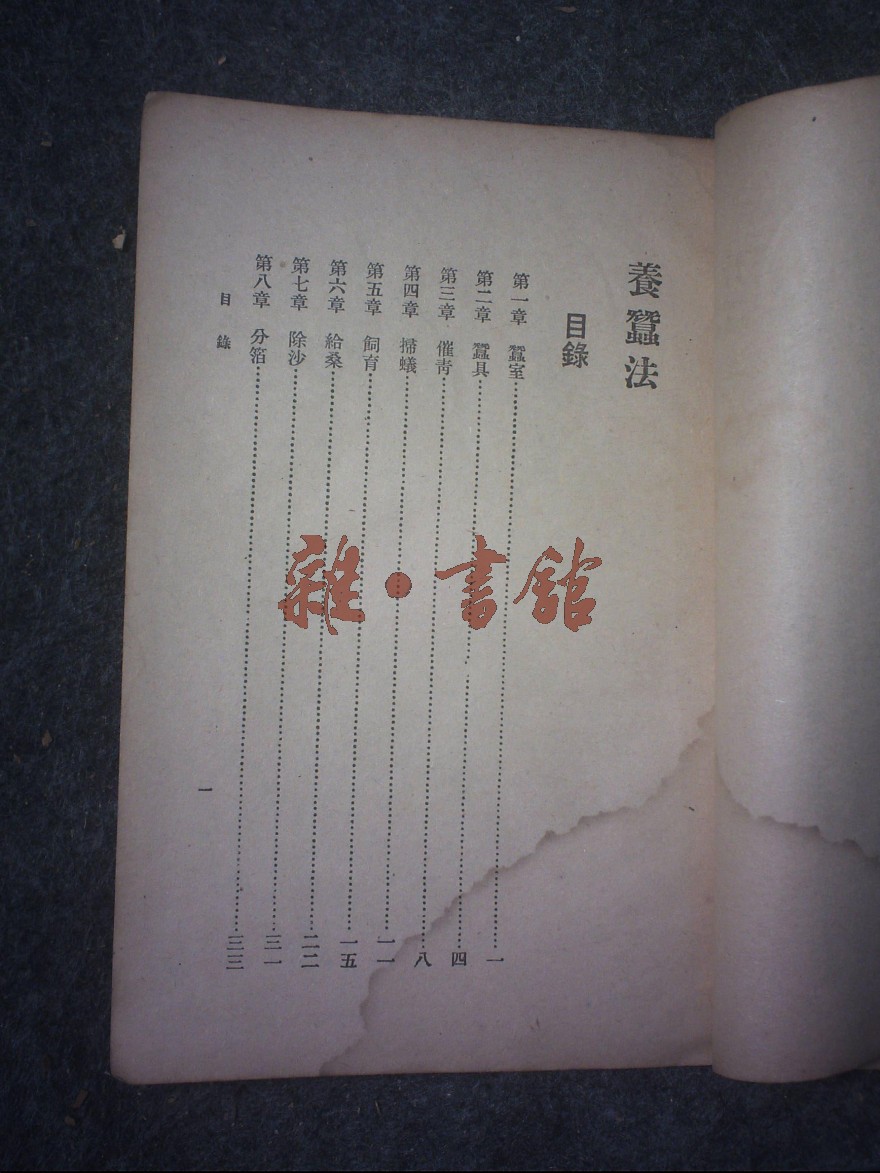 養蠶法
目錄
第一章 蠶室…………一
第二章 蠶具…………四
第三章 催青…………八
第四章 掃蟻…………一一
第五章 飼育…………一五
第六章 給桑…………二二
第七章 除沙…………三一
第八章 分箔…………三三
目錄
一
雜·書館